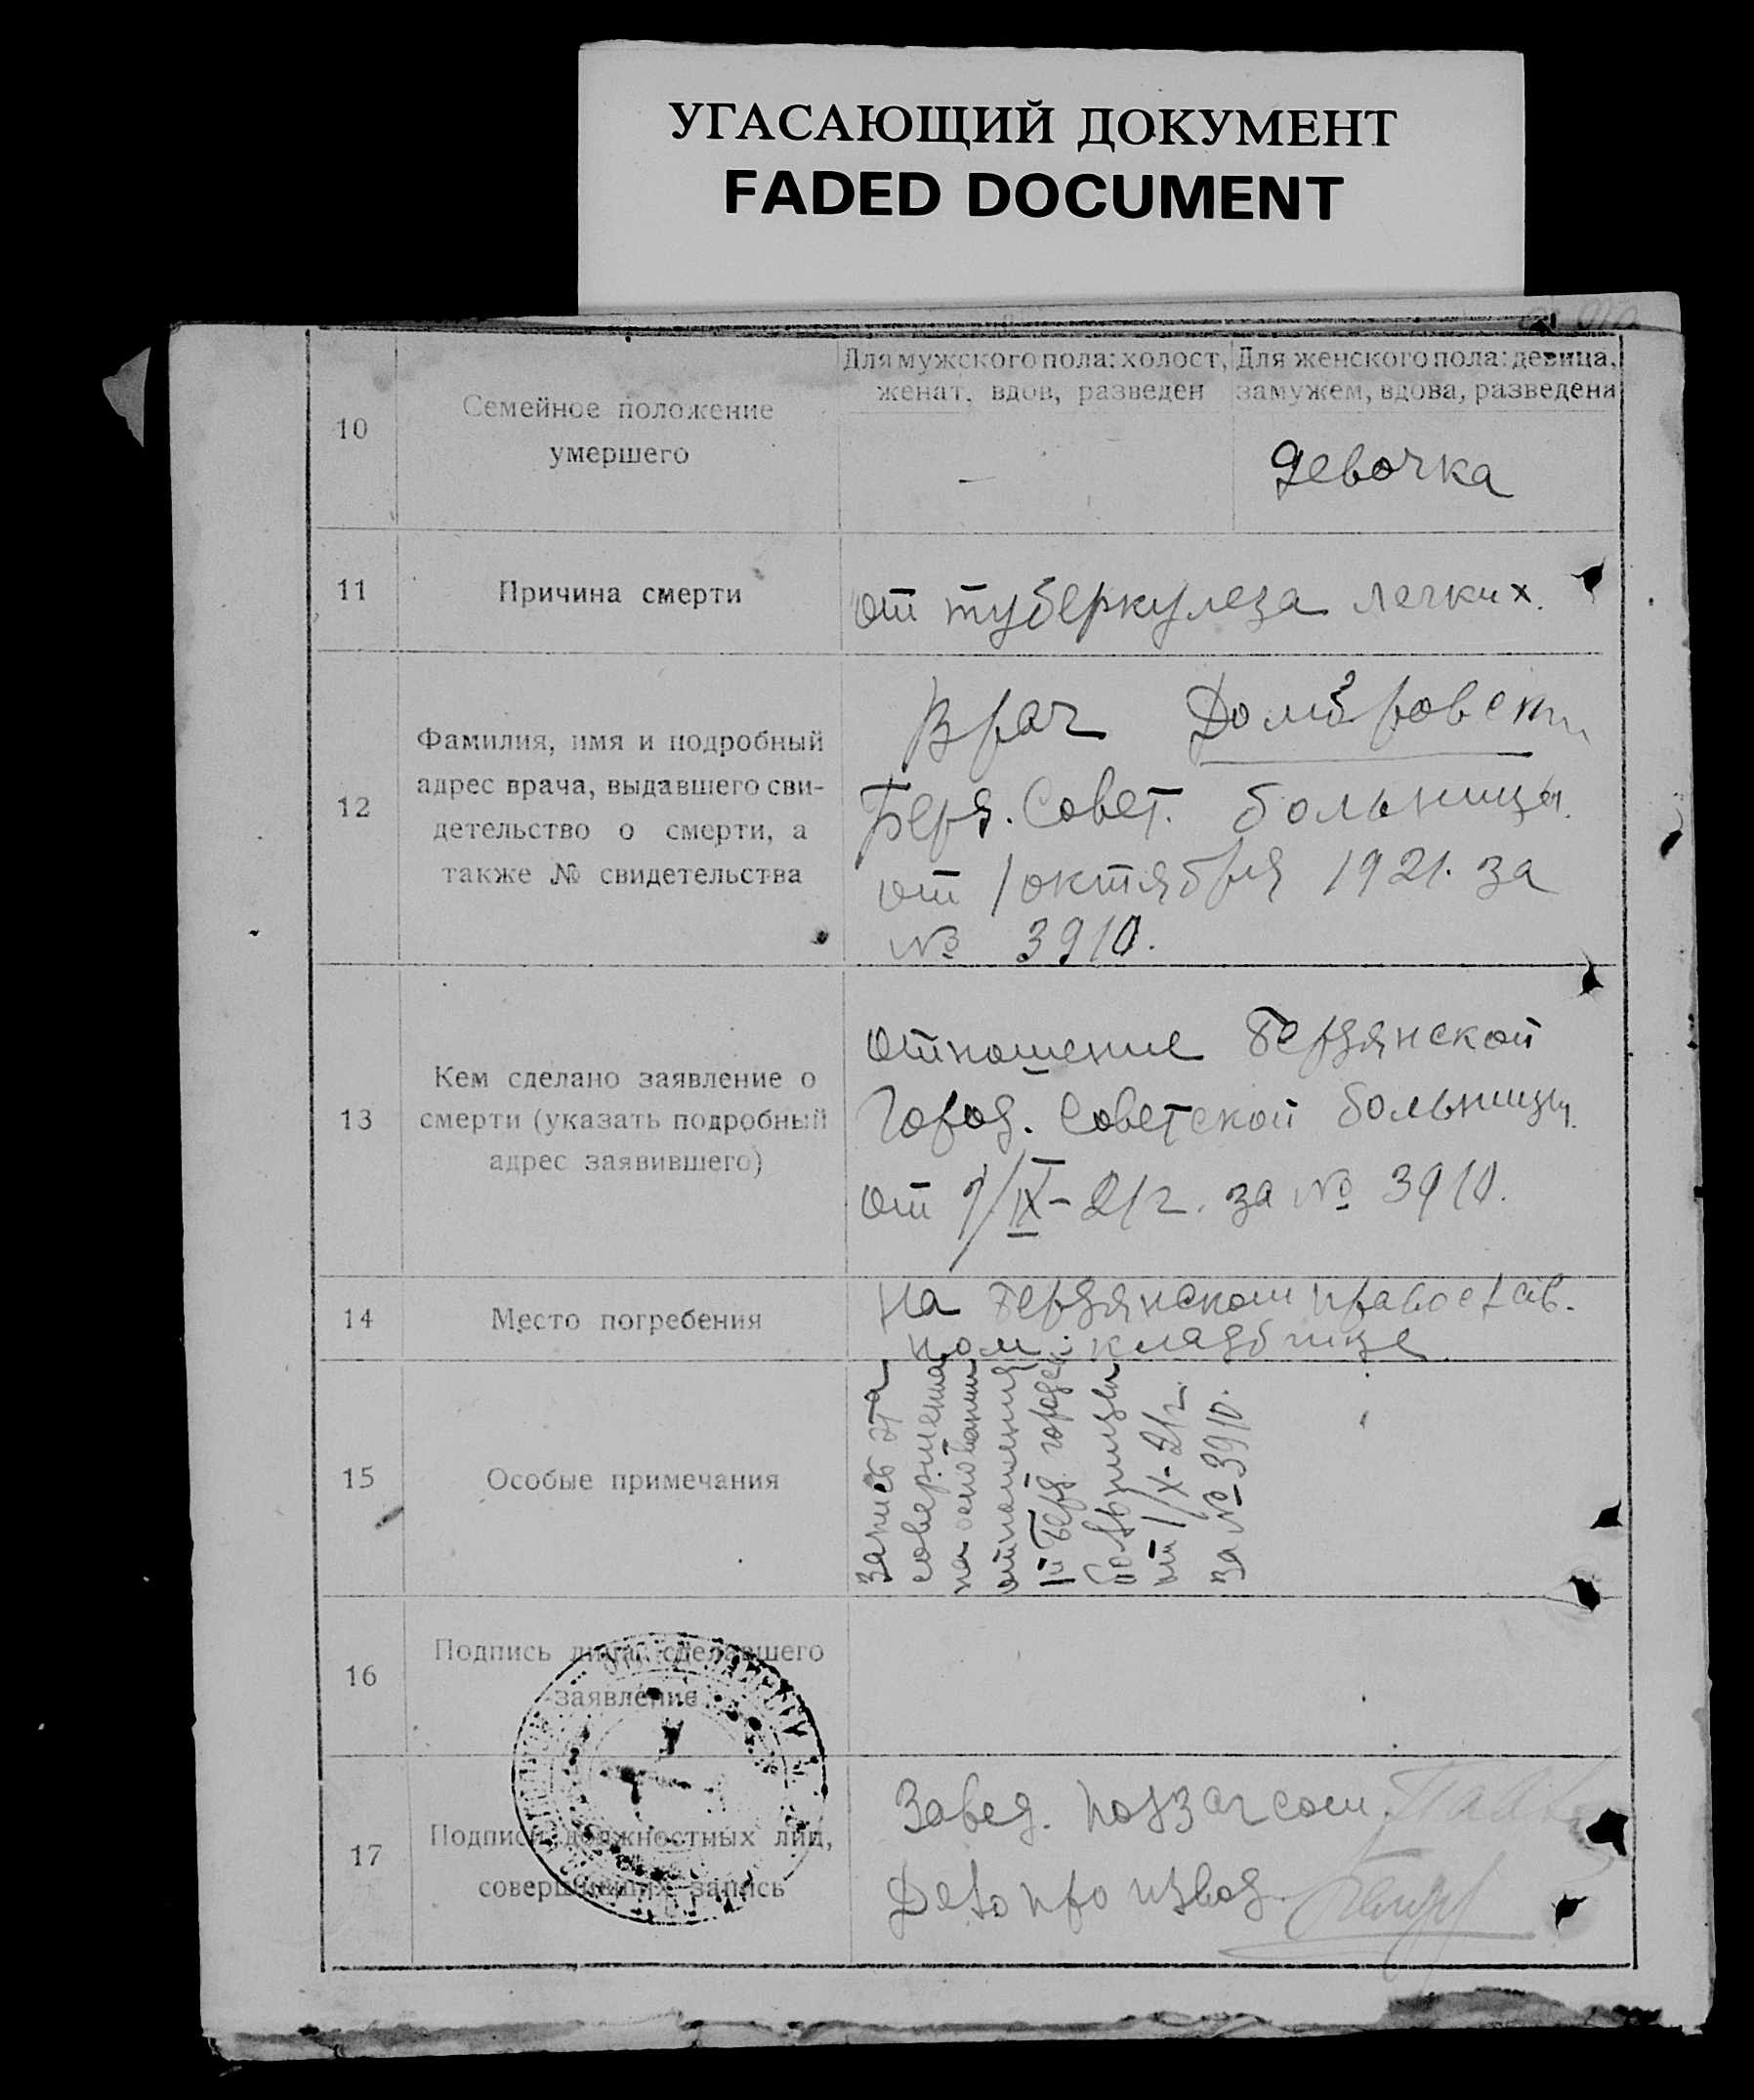 УГАСАЮЩИЙ ДОКУМЕНТ
FADED DOCUMENT
10
Семейное положение
умершего
Для мужского пола: холост,
женат, вдов, разведен
—
Для женского пола: девица,
замужем, вдова, разведена
девочка
11
Причина смерти
от туберкулеза легких.
12
Фамилия, имя и подробный
адрес врача, выдавшего сви-
детельство о смерти, а
также № свидетельства
Врач
Берд. Совет. больницы.
от 1 октября 1921. за
№ 3910.
13
Кем сделано заявление о
смерти (указать подробный
адрес заявившего)
отношение Бердянской
Город. Советской больницы.
от 1/IX-21г. за № 3910.
14
Место погребения
на Бердянском православ-
ном кладбище
15
Особые примечания
Запись эта
совершена
на основании
отношения
Берд. город
больницы
от 1/X-21г.
за № 3910.
16
Подпись лица, сделавшего
заявление
17
Подписи должностных лиц,
совершивших запись
Завед. подзагсом
Делопроизвод.